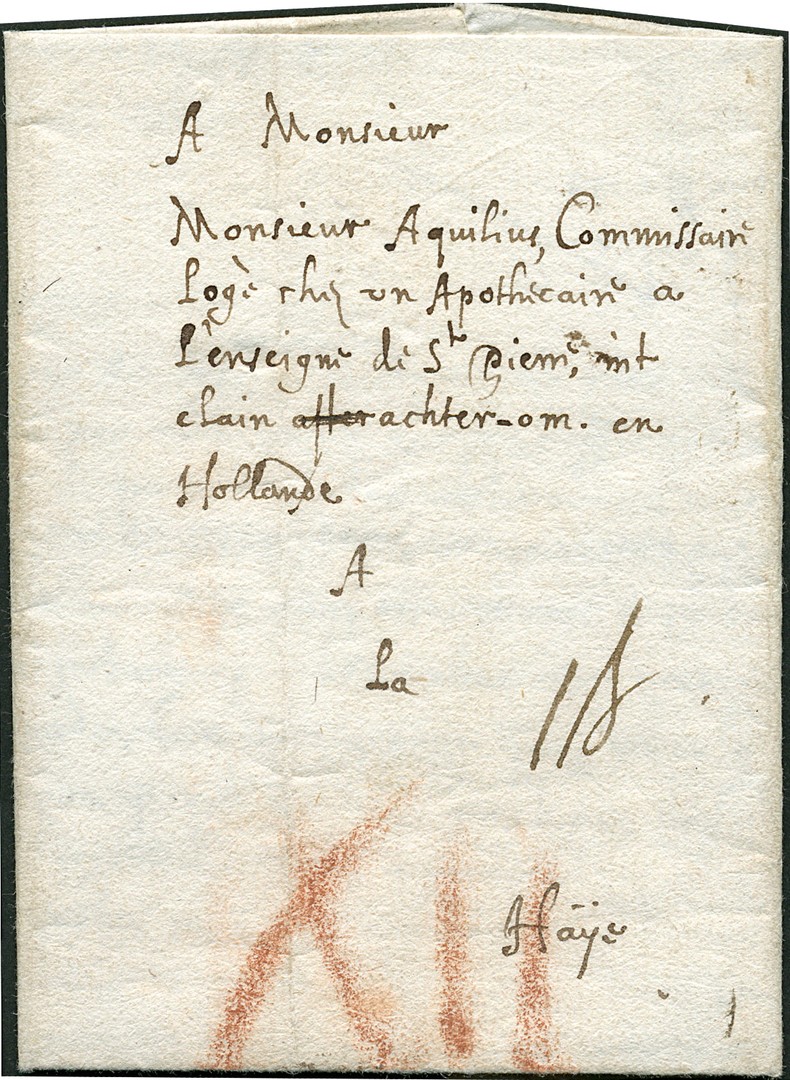 A Monsieur
Monsieur Aquilius, Commissaire
Logè chez vn Apothecaire a
L'enseigne de St Pierre, int
clain achter-om. en
Hollande
A
La
XII
Häÿe